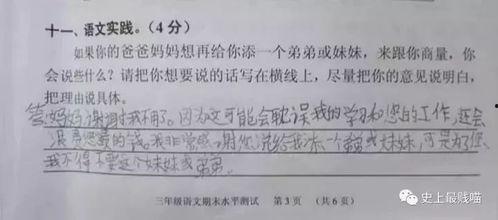 十一、语文实践。（4 分）
如果你的爸爸妈妈想再给你添一个弟弟或妹妹，来跟你商量，你
会说些什么？请把你想要说的话写在横线上，尽量把你的意见说明白，
把理由说具体。
爸妈妈谢谢 我不用了。因为这可能会耽误我的学习和您的工作，还会
浪费您 的钱。我非常感谢您说给我添一个弟弟或妹妹，可是 您、
我不得不要这个妹妹或弟弟。
三年级语文期末水平测试 第 3 页 （共 6 页）
史上最贱喵